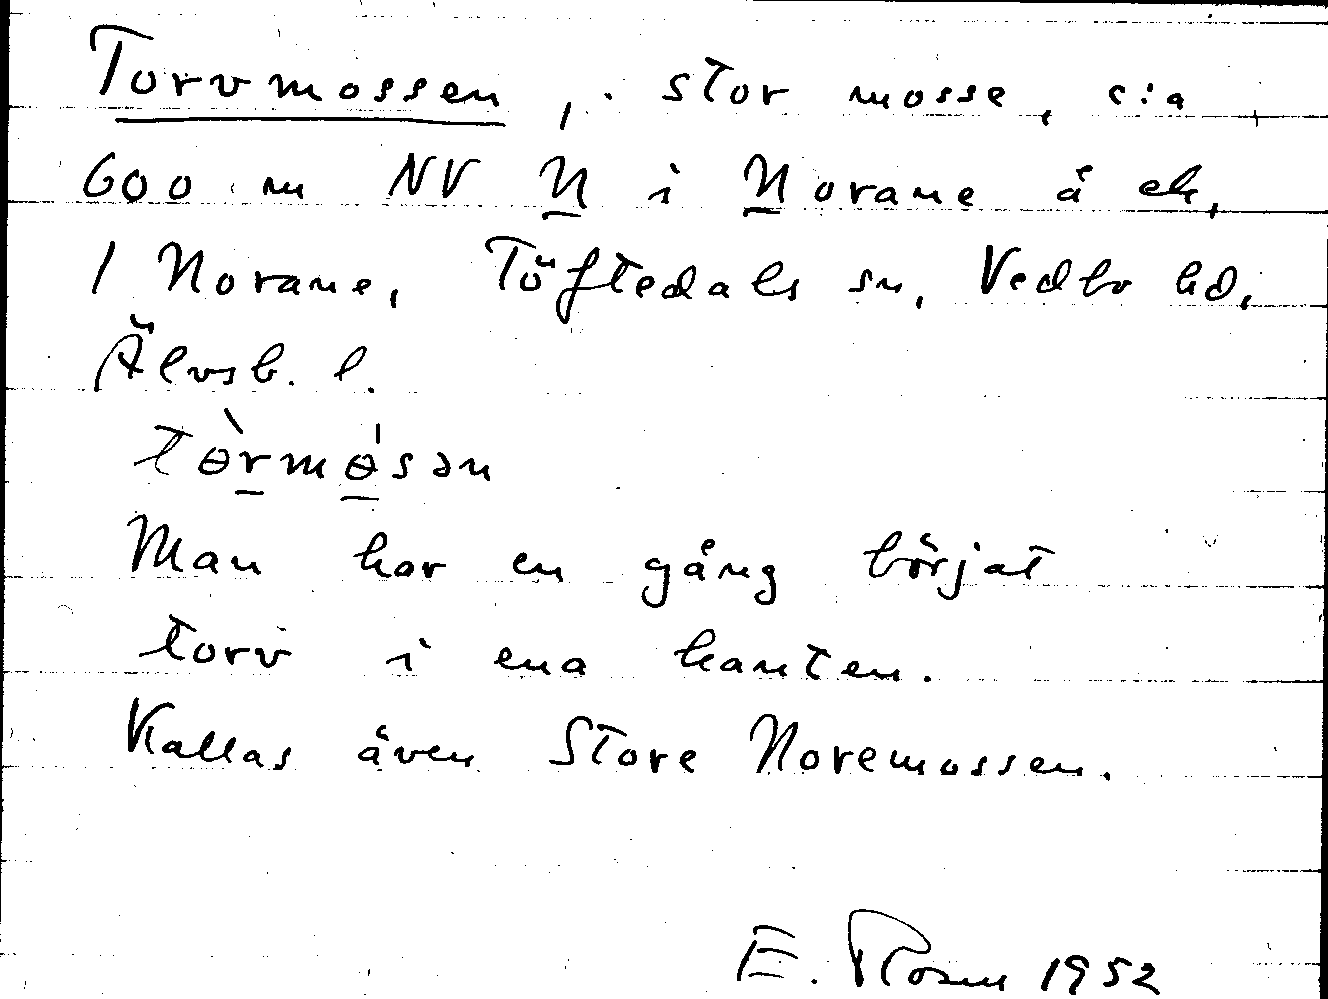 Torvmossen, stor mosse, c:a
600 m NV N i Norane å ek,
1 Norane, Töftedals sn, Vedbo hd,
Älvsb. l.
tɵ̀rmɵ́sən
Man har en gång börjat
torv i ena kanten.
Kallas även Store Noremossen.
E. Rosm 1952